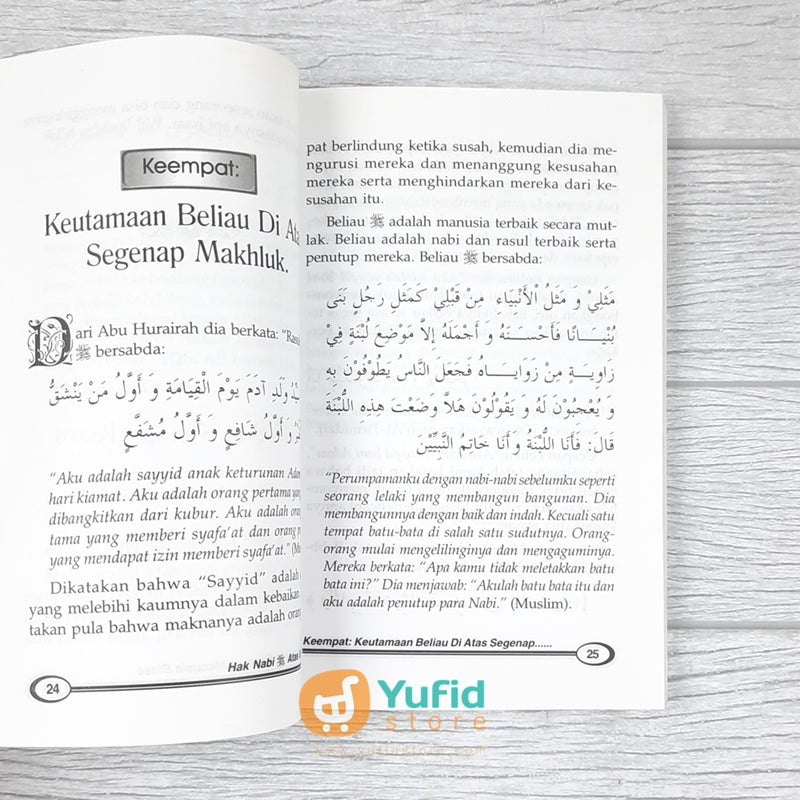 Keempat:
Keutamaan Beliau Di Atas
Segenap Makhluk.
Dari Abu Hurairah dia berkata: "Rasul
ﷺ bersabda:
وَلَدِ آدَمَ يَوْمَ الْقِيَامَةِ وَ أَوَّلُ مَنْ يَنْشَقُّ
وَ أَوَّلُ شَافِعٍ وَ أَوَّلُ مُشَفَّعٍ
"Aku adalah sayyid anak keturunan Adam
hari kiamat. Aku adalah orang pertama yang
dibangkitkan dari kubur. Aku adalah oran
tama yang memberi syafa'at dan orang p
yang mendapat izin memberi syafa'at."
Dikatakan bahwa "Sayyid" adalah
yang melebihi kaumnya dalam kebaikan.
takan pula bahwa maknanya adalah orang
Hak Nabi ﷺ Atas
24
pat berlindung ketika susah, kemudian dia me-
ngurusi mereka dan menanggung kesusahan
mereka serta menghindarkan mereka dari ke-
susahan itu.
Beliau ﷺ adalah manusia terbaik secara mut-
lak. Beliau adalah nabi dan rasul terbaik serta
penutup mereka. Beliau ﷺ bersabda:
مَثَلِيْ وَ مَثَلُ الْأَنْبِيَاءِ مِنْ قَبْلِيْ كَمَثَلِ رَجُلٍ بَنَى
بُنْيَانًا فَأَحْسَنَهُ وَ أَجْمَلَهُ إِلاَّ مَوْضِعَ لُبْنَةٍ فِيْ
زَاوِيَةٍ مِنْ زَوَايَاهُ فَجَعَلَ النَّاسُ يَطُوْفُوْنَ بِهِ
وَ يُعْجِبُوْنَ لَهُ وَ يَقُوْلُوْنَ هَلاَّ وَضَعْتَ هَذِهِ اللُّبْنَةَ
قَالَ: فَأَنَا اللُّبْنَةُ وَ أَنَا خَاتِمُ النَّبِيِّيْنَ
"Perumpamanku dengan nabi-nabi sebelumku seperti
seorang lelaki yang membangun bangunan. Dia
membangunnya dengan baik dan indah. Kecuali satu
tempat batu-bata di salah satu sudutnya. Orang-
orang mulai mengelilinginya dan mengaguminya.
Mereka berkata: "Apa kamu tidak meletakkan batu
bata ini?" Dia menjawab: "Akulah batu bata itu dan
aku adalah penutup para Nabi." (Muslim).
Keempat: Keutamaan Beliau Di Atas Segenap......
25
Yufid
store
www.yufidstore.com